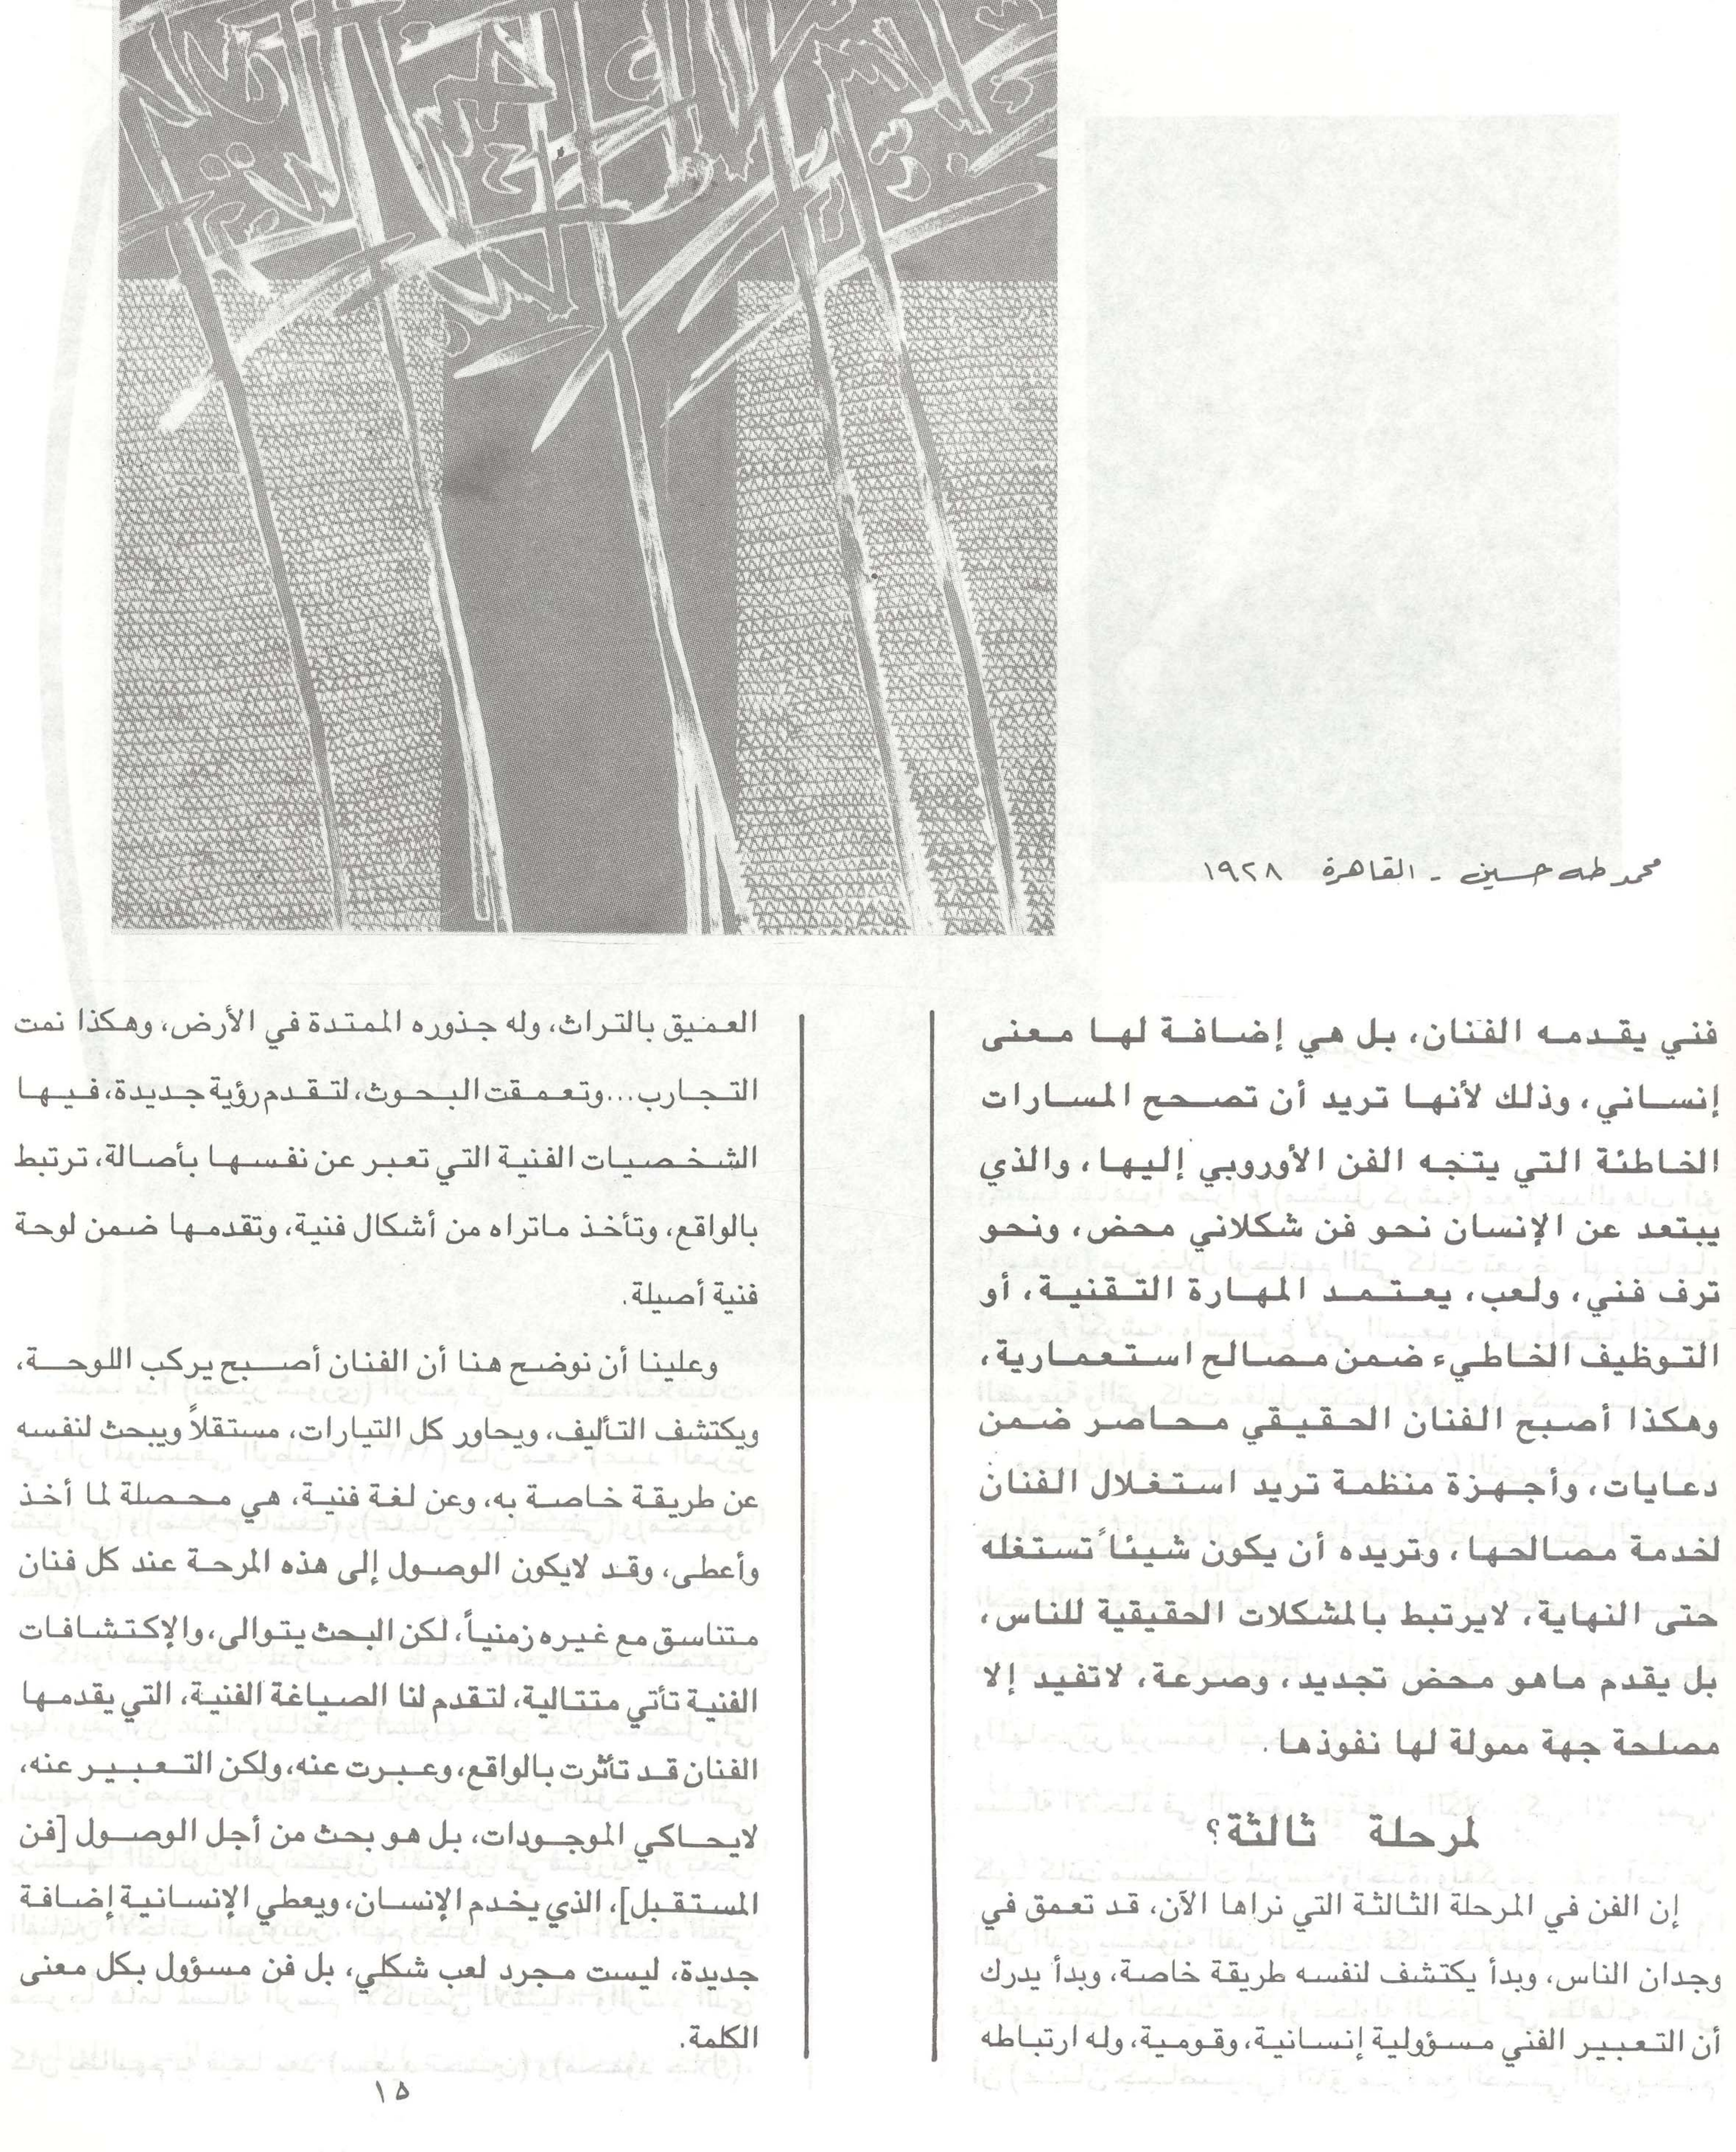 محمد طه حسين - القاهرة ١٩٢٨
فني يقدمه الفنان، بل هي إضافة لها معنى
إنساني، وذلك لأنها تريد أن تصحح المسارات
الخاطئة التي يتجه الفن الأوروبي إليها، والذي
يبتعد عن الإنسان نحو فن شكلاني محض، ونحو
ترف فني، ولعب، يعتمد المهارة التقنية، أو
التوظيف الخاطيء ضمن مصالح استعمارية،
وهكذا أصبح الفنان الحقيقي محاصر ضمن
دعايات، وأجهزة منظمة تريد استغلال الفنان
لخدمة مصالحها، وتريده أن يكون شيئاً تستغله
حتى النهاية، لايرتبط بالمشكلات الحقيقية للناس،
بل يقدم ماهو محض تجديد، وصرعة، لاتفيد إلا
مصلحة جهة ممولة لها نفوذها.
لمرحلة ثالثة؟
إن الفن في المرحلة الثالثة التي نراها الآن، قد تعمق في
وجدان الناس، وبدأ يكتشف لنفسه طريقة خاصة، وبدأ يدرك
أن التعبير الفني مسؤولية إنسانية، وقومية، وله ارتباطه
العميق بالتراث، وله جذوره الممتدة في الأرض، وهكذا نمت
التجارب...وتعمقت البحوث، لتقدم رؤية جديدة، فيها
الشخصيات الفنية التي تعبر عن نفسها بأصالة، ترتبط
بالواقع، وتأخذ ماتراه من أشكال فنية، وتقدمها ضمن لوحة
فنية أصيلة.
وعلينا أن نوضح هنا أن الفنان أصبح يركب اللوحة،
ويكتشف التأليف، ويحاور كل التيارات، مستقلاً ويبحث لنفسه
عن طريقة خاصة به، وعن لغة فنية، هي محصلة لما أخذ
وأعطى، وقد لايكون الوصول إلى هذه المرحة عند كل فنان
متناسق مع غيره زمنياً، لكن البحث يتوالى، والإكتشافات
الفنية تأتي متتالية، لتقدم لنا الصياغة الفنية، التي يقدمها
الفنان قد تأثرت بالواقع، وعبرت عنه، ولكن التعبير عنه،
لايحاكي الموجودات، بل هو بحث من أجل الوصول [فن
المستقبل]، الذي يخدم الإنسان، ويعطي الإنسانية إضافة
جديدة، ليست مجرد لعب شكلي، بل فن مسؤول بكل معنى
الكلمة.
١٥